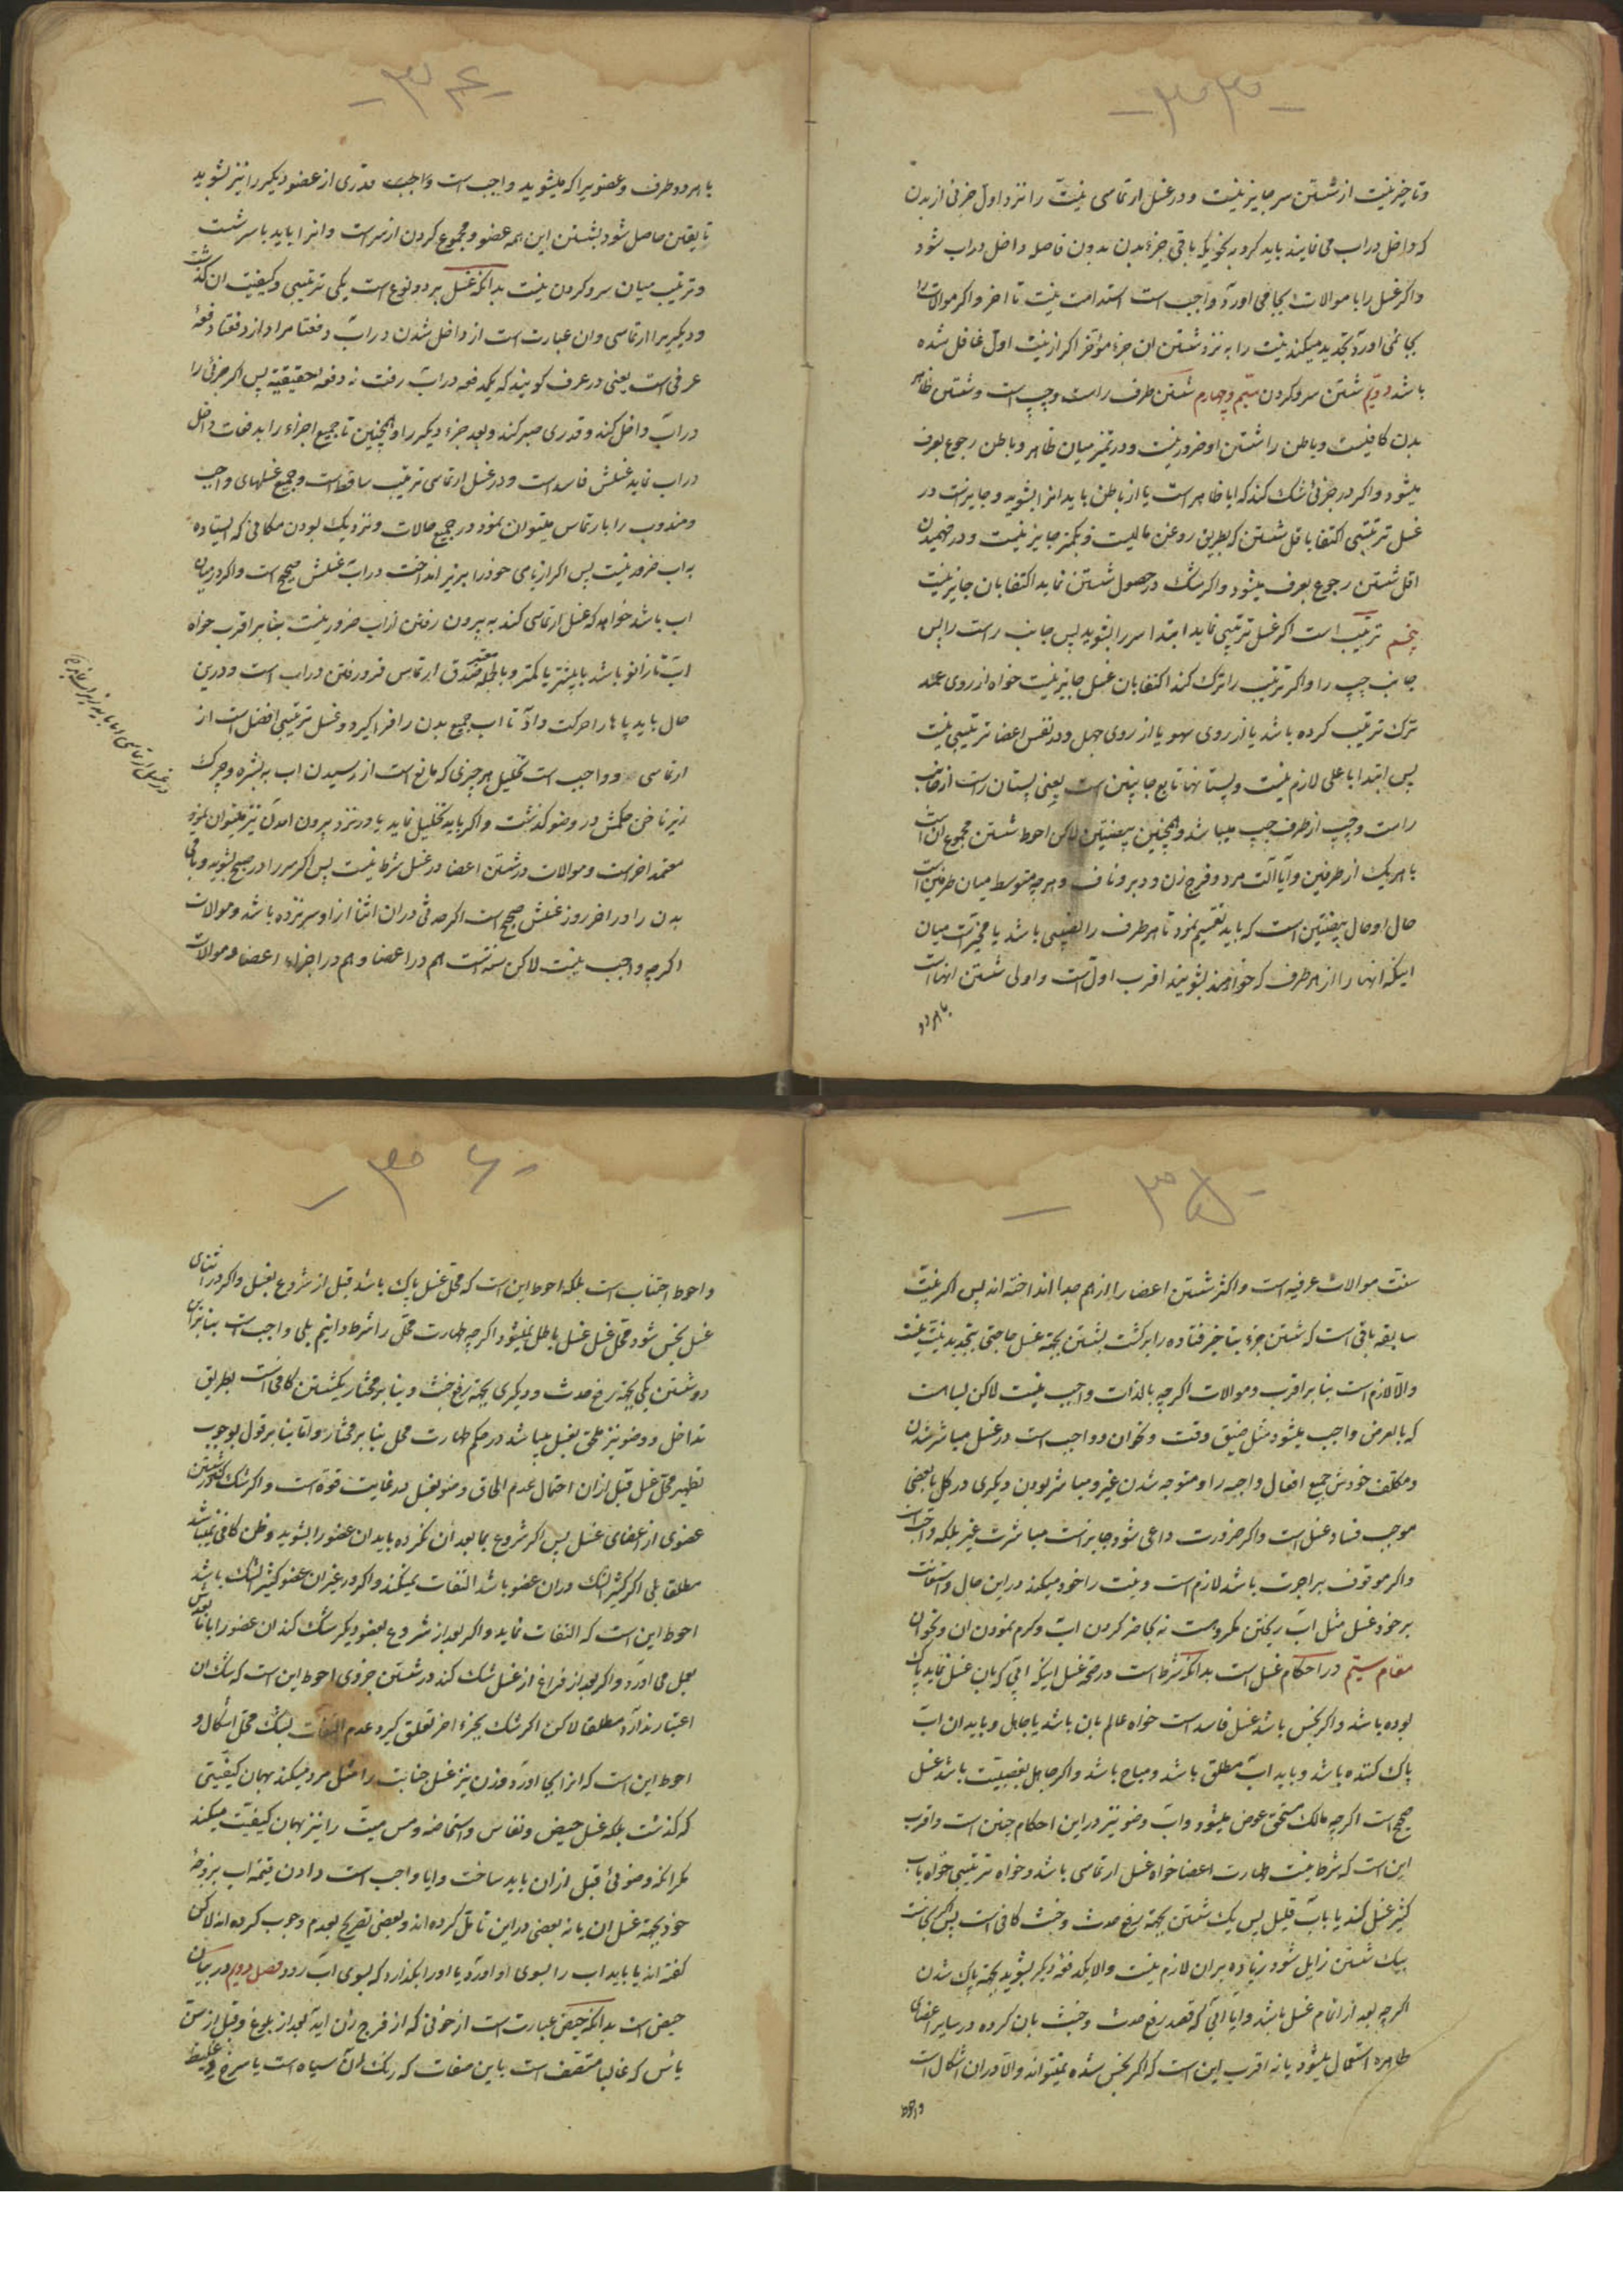 -۳۳-
وتاخیر نیت از شستن سر جایز نیست ودر غسل ارتماسی نیت را نزد اول جزئی از بدن
که داخل در اب می نمایند باید کرد به نحویکه باقی جزء بدن بدون فاصله داخل در اب شود
واکر غسل را با موالات بجا می اورد واجب است استدامت نیت تا اخر واکر موالات را
بجا نمی اورد تجدید میکند نیت را به نزد شستن ان جزء مؤخر اکر از نیت اول غافل شده
باشد دویم شستن سر وکردن سیم وچهارم شستن طرف راست وچپ است وشستن ظاهر
بدن کافیست وباطن را شستن او ضرور نیست ودر تمیز میان ظاهر وباطن رجوع بعرف
میشود واکر در جزئی شک کند که ایا ظاهر است یا از باطن باید انرا بشوید وجایز است در
غسل ترتیبی اکتفا باقل شستن که بطریق روغن مالیست وبکمتر جایز نیست ودر فهمیدن
اقل شستن رجوع بعرف میشود واکر شک در حصول شستن نماید اکتفا بان جایز نیست
پنجم ترتیب است اکر غسل ترتیبی نماید ابتدا سر را بشوید پس جانب راست را پس
جانب چپ را واکر ترتیب را ترک کند اکتفا بان غسل جایز نیست خواه از روی عمد
ترک ترتیب کرده باشد یا از روی سهو یا از روی جهل ودر نفس اعضا ترتیبی نیست
پس ابتدا باعلی لازم نیست وپستانها تابع جانبین است یعنی پستان راست از جانب
راست وچپ از طرف چپ میباشد وهمچنین بیضتین لاکن احوط شستن مجموع ان است
با هر یک از طرفین وایا آلت مرد وفرج زن ودبر وناف وهرچه متوسط میان طرفین است
حال او حال بیضتین است که باید تقسیم نمود تا هر طرف را نصیبی باشد یا مخیر است میان
اینکه انها را از هر طرف که خواهند بشویند اقرب اول است واولی شستن انهاست
با هر دو
-۳۴-
با هر دو طرف وعضویرا که میشوید واجب است واجب قدری از عضو دیکر را نیز بشوید
تا یقین حاصل شود بشستن این همه عضو ومجموع کردن از سر است وانرا باید با سر شست
وترتیب میان سر وکردن نیست بدانکه غسل بر دو نوع است یکی ترتیبی وکیفیت ان کذشت
ودیکریرا ارتماسی وان عبارت است از داخل شدن در اب دفعتا مراد از دفعتا دفعهٔ
عرفی است یعنی در عرف کویند که یکدفعه در اب رفت نه دفعه حقیقیه پس اکر جزئی را
در اب داخل کند وقدری صبر کند وبعد جزء دیکر را وهمچنین تا جمیع اجزاء را بدفعات داخل
در اب نماید غسلش فاسد است ودر غسل ارتماسی ترتیب ساقط است وجمیع غسلهای واجب
ومندوب را بارتماس میتوان نمود در جمیع حالات ونزدیک بودن مکانی که ایستاده
به اب ضرور نیست پس اکر از بامی خود را بزیر انداخت در اب غسلش صحیح است واکر در میان
اب باشد خواهد که غسل ارتماسی کند به بیرون رفتن از اب ضرور نیست بنا بر اقرب خواه
اب تا زانو باشد یا بیشتر یا کمتر وبا جمله معتبر صدق ارتماس فرو رفتن در اب است ودرین
حال باید پاها را حرکت داد تا اب جمیع بدن را فرا کیرد وغسل ترتیبی افضل است از
ارتماسی وواجب است تخلیل هر چیزی که مانع است از رسیدن اب به بشره وچرک
زیر ناخن حکمش در وضو کذشت واکر باید تخلیل نماید یا در نزد بیرون امدن نیز میتوان نمود
معتمد اخر است وموالات در شستن اعضا در غسل شرط نیست پس اکر سر را در صبح بشوید وباقی
بدن را در اخر روز غسلش صحیح است اکرچه حدثی در ان اثنا از او سر نزده باشد وموالات
اکرچه واجب نیست لاکن سنت است هم در اعضا وهم در اجزاء اعضا وموالات
-۳۵-
سنت موالات عرفیه است واکثر شستن اعضا را از هم جدا انداخته اند پس اکر نیت
سابقه باقی است که شستن جزء بتاخیر فتاده را برکشت بشستن بجهة غسل حاجتی بتجدید نیت نیست
والا لازم است بنا بر اقرب وموالات اکرچه بالذات واجب نیست لاکن بسا هست
که بالعرض واجب میشود مثل ضیق وقت ونحو ان وواجب است در غسل مباشر شدن
ومکلف خودش جمیع افعال واجبه را ومتوجه شدن غیر ومباشر بودن دیکری در کل یا بعضی
موجب فساد غسل است واکر ضرورت داعی شود جایز است مباشرت غیر بلکه واجب است
واکر موقوف براجرت باشد لازم است ونیت را خود میکند در این حال واستعانت
بر خود غسل مثل اب ریختن مکروهست نه بحاضر کردن اب وکرم نمودن ان ونحو ان
مقام سیم در احکام غسل است بدانکه شرط است در صحة غسل اینکه ابی که بان غسل نماید پاک
بوده باشد واکر نجس باشد غسل فاسد است خواه عالم بان باشد یا جاهل وباید ان اب
پاک کننده باشد وباید اب مطلق باشد ومباح باشد واکر جاهل بغصبیت باشد غسل
صحیح است اکرچه مالک مستحق عوض میشود واب وضو نیز در این احکام چنین است واقرب
این است که شرط نیست طهارت اعضا خواه غسل ارتماسی باشد وخواه ترتیبی خواه باب
کثیر غسل کند یا باب قلیل پس یک شستن بجهة رفع حدث وخبث کافی است پس اکر نجاست
بیک شستن زایل شود زیاده بر ان لازم نیست والا یکدفعه دیکر بشوید بجهة پاک شدن
اکرچه بعد از اتمام غسل باشد وایا ابی که قصد رفع حدث وخبث بان کرده در سایر اعضای
طاهره استعمال میشود یا نه اقرب این است که اکر نجس شده نمیتواند والا در ان اشکال است
واحوط
-۳۶-
واحوط اجتناب است بلکه احوط این است که محل غسل پاک باشد قبل از شروع بغسل واکر در اثنای
غسل نجس شود محل غسل غسل باطل نمیشود اکرچه طهارت محل را شرط دانیم بلی واجب است بنا بر ان
دو شستن یکی بجهة رفع حدث ودیکری بجهة رفع خبث وبنا بر مختار یکشستن کافی است بطریق
تداخل ووضو نیز ملحق بغسل میباشد در حکم طهارت محل بنا بر مختار واما بنا بر قول بوجوب
تطهیر محل غسل قبل از ان احتمال عدم الحاق وضو بغسل در غایت قوة است واکر شک کند در شستن
عضوی از اعضای غسل پس اکر شروع بمابعد ان نکرده باید ان عضو را بشوید وظن کافی نمیباشد
مطلقا بلی اکر کثیر الشک در ان عضو باشد التفات نمیکند واکر در غیر ان عضو کثیر الشک باشد
احوط این است که التفات نماید واکر بعد از شروع بعضو دیکر شک کند ان عضو را با مابعدش
بعمل می اورد واکر بعد از فراغ از غسل شک کند در شستن جزوی احوط این است که شک ان
اعتبار ندارد مطلقا لاکن اکر شک بجزء اخر تعلق کیرد عدم التفات بشک محل اشکال و
احوط این است که انرا بجا اورد وزن نیز غسل جنابت را مثل مرد میکند بهمان کیفیتی
که کذشت بلکه غسل حیض ونفاس واستحاضه ومس میت را نیز بهمان کیفیت میکند
مکر انکه وضوئی قبل از ان باید ساخت وایا واجب است دادن قیمة اب بزوجهٔ
خود بجهة غسل ان یا نه بعضی در این تامل کرده اند وبعضی تصریح بعدم وجوب کرده اند لاکن
کفته اند یا باید اب را بسوی او اورد یا او را بکذارد که بسوی اب رود فصل دویم در بیان
حیض است بدانکه حیض عبارت است از خونی که از فرج زن اید بعد از بلوغ وقبل از سن
یاس که غالبا متصف است باین صفات که رنک ان سیاه است یا سرخ وغلیظ